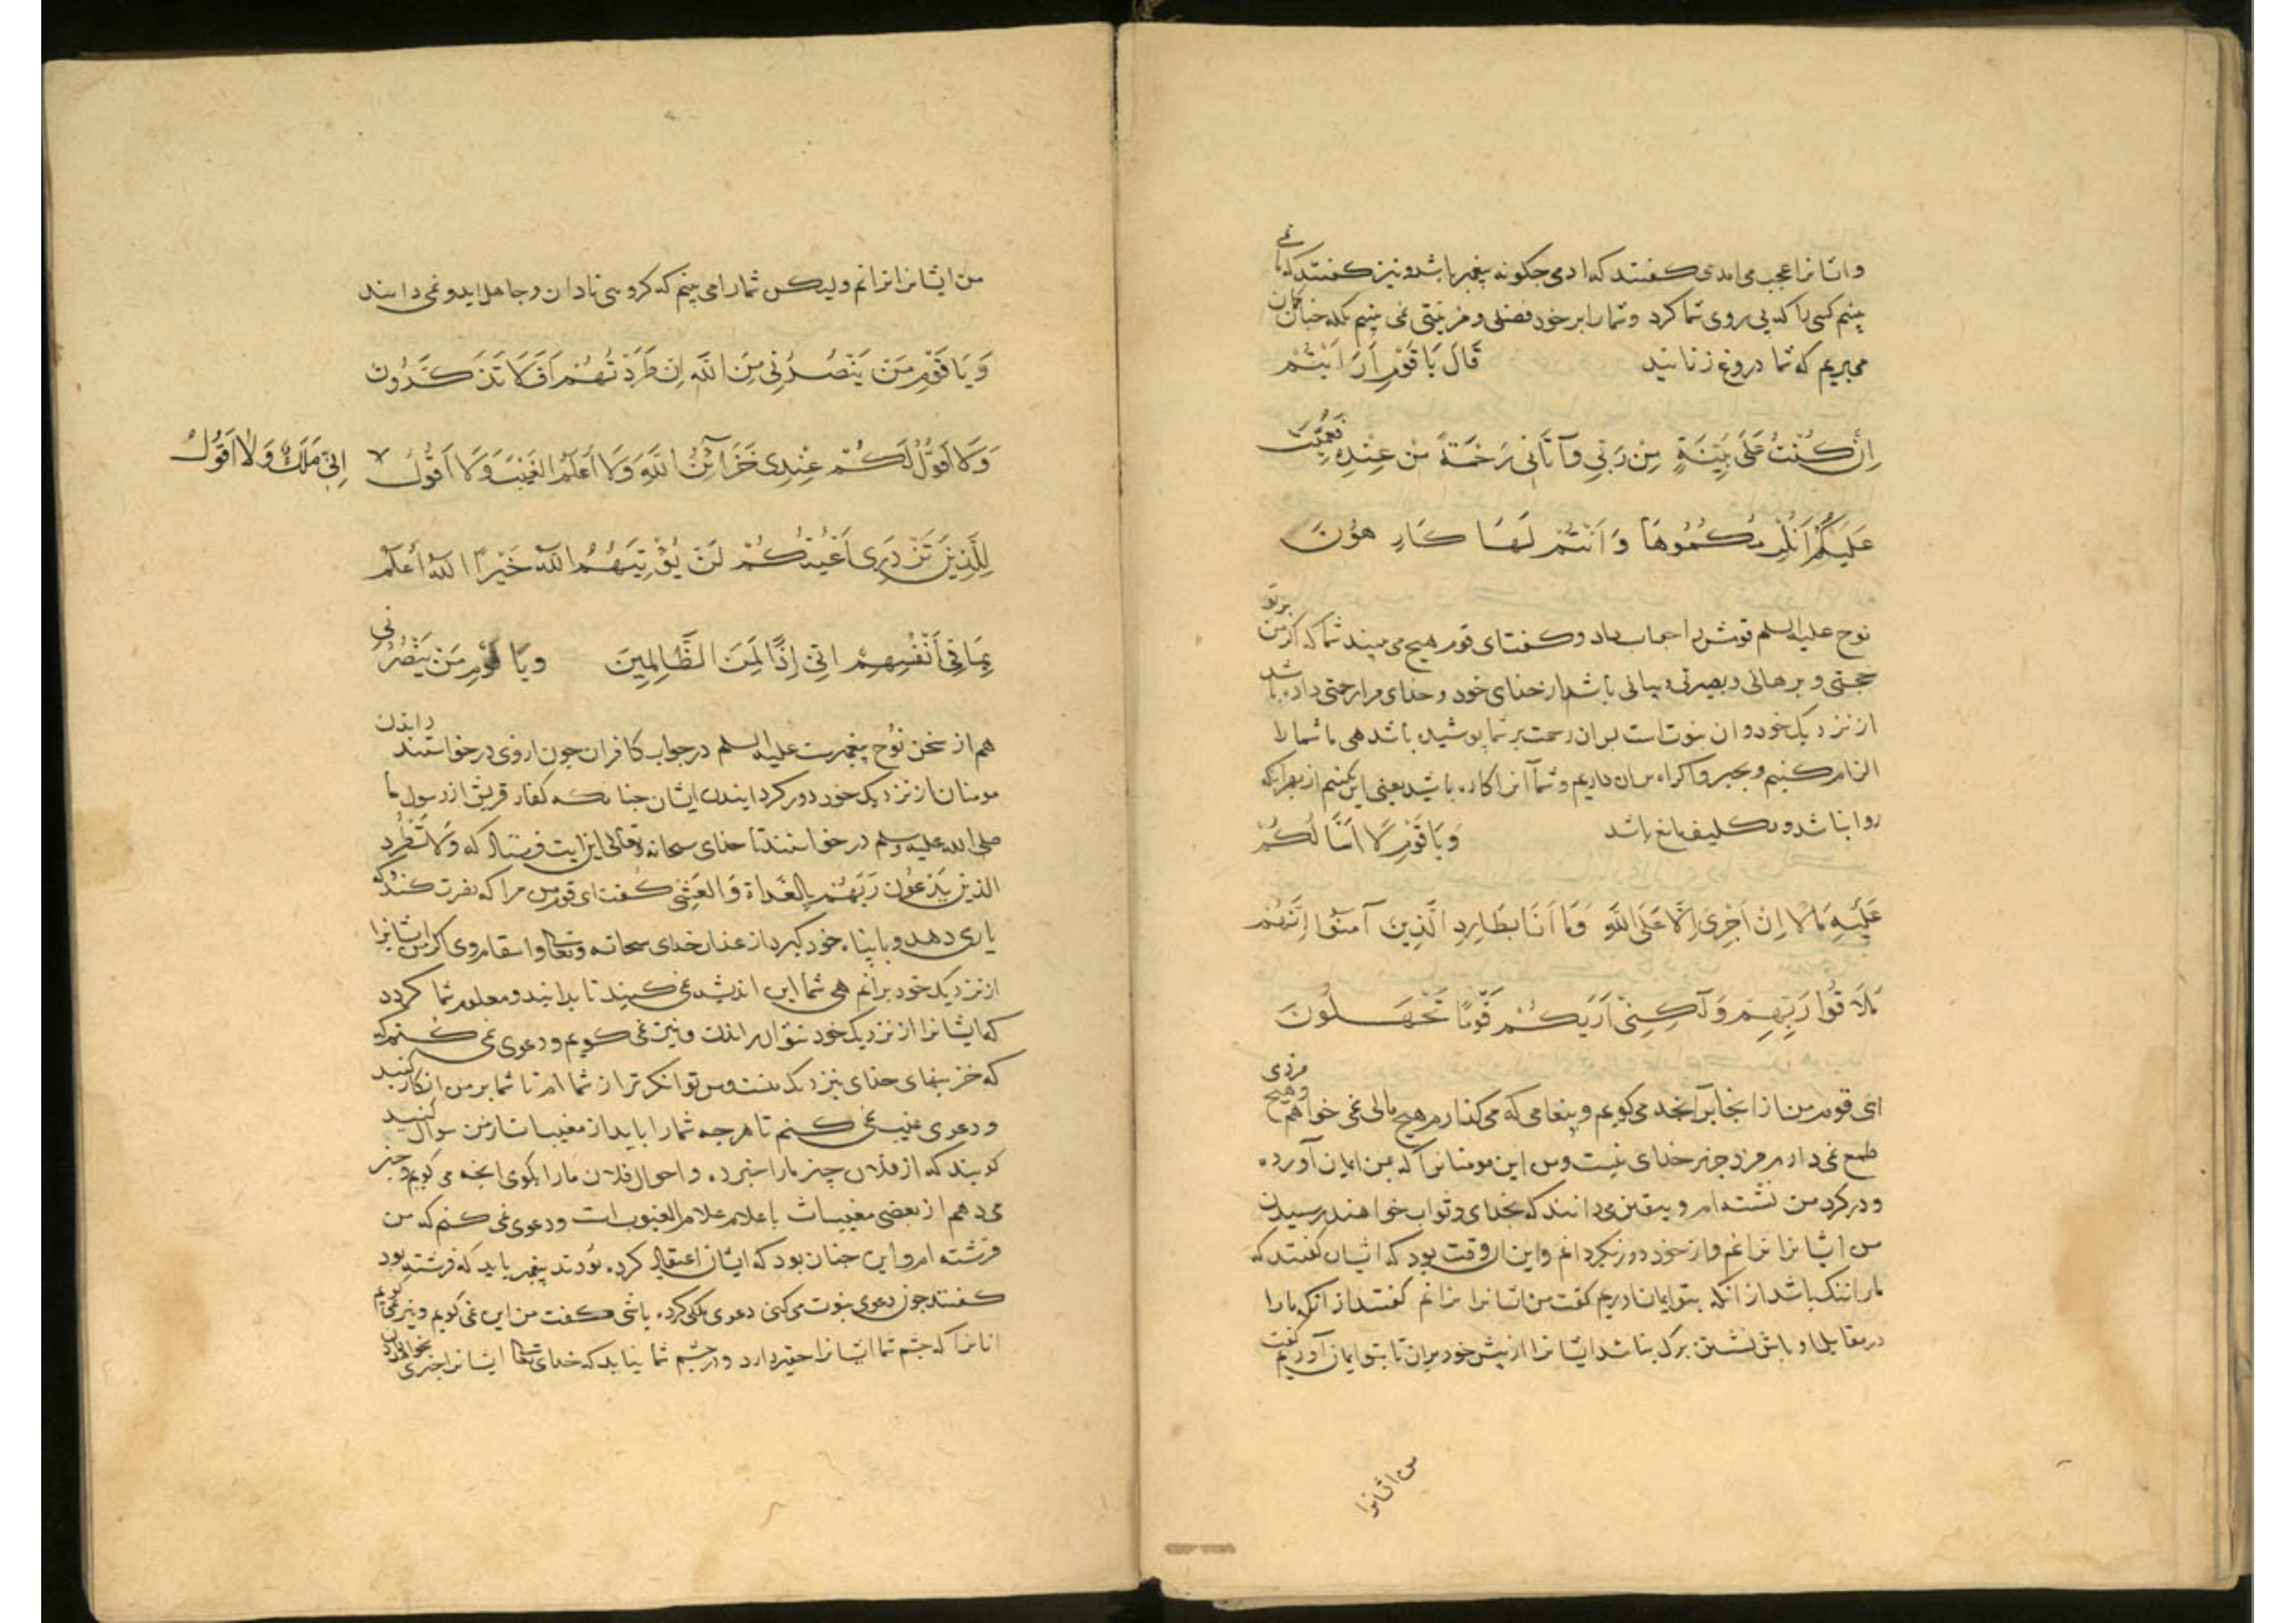 وانانرا عجب می امدی کفتند که ادمی جکونه پیغمبر باشد و نیز کفتند که ما نمی
بینیم کسی را که پی روی شما کرد و شما را بر خود فضلی و مزیتی نمی بینیم بلکه جنان کمان
میبریم که شما دروغ زنانید قَالَ يَا قَوْمِ اَرَاَيْتُمْ
اِنْ كُنْتُ عَلَى بَيِّنَةٍ مِنْ رَبِّي وَآتَانِي رَحْمَةً مِنْ عِنْدِهِ فَعُمِّيَتْ
عَلَيْكُمْ اَنُلْزِمُكُمُوهَا وَاَنْتُمْ لَهَا كَارِهُونَ
نوح علیه السلم قومش را جواب داد و کفت ای قوم هیچ می بیند شما که اکر من بر تو
حجتی و برهانی و بصیرتی و بیانی باشم از خدای خود و خدای مرا رحمتی داده باشد
از نزدیک خود و ان نبوتست بس ان رحمت بر شما پوشیده باشد هی ما شما را
الزام کنیم و بجبر و اکراه بران داریم و شما آنرا کاره باشید یعنی این نکنیم از بهر انکه
روا نباشد و تکلیف مانع باشد وَيَا قَوْمِ لَا اَسْاَلُكُمْ
عَلَيْهِ مَالًا اِنْ اَجْرِيَ اِلَّا عَلَى اللَّهِ وَمَا اَنَا بِطَارِدِ الَّذِينَ آمَنُوا اِنَّهُمْ
مُلَاقُوا رَبِّهِمْ وَلَكِنِّي اَرَيكُمْ قَوْمًا تَجْهَلُونَ
ای قوم من از اینجا بر آنجه می کویم و پیغامی که می کذارم هیچ مالی نمی خواهم و هیچ مزدی
طمع نمی دارم مزد جز بر خدای نیست و من این مومنانرا که بمن ایمان آورده
و در کرد من نشسته اند و بیقین می دانند که بخدای و ثواب خواهند رسیدن
من ایشانرا نرانم و از خود دور نکردانم و این ان وقت بود که ایشان کفتند که
مارا ننک باشد از انکه بتو ایمان اوریم کفت من ایشانرا نرانم کفتند از انکه مارا
در مقابل او باش نشستن برک نباشد ایشانرا از پیش خود بران تا بتو ایمان آوریم کفت
من ایشانرا
من ایشانرا نرانم ولیکن شمارا می بینم که کروهی نادان و جاهل اید و نمی دانید
وَيَا قَوْمِ مَنْ يَنْصُرُنِي مِنَ اللَّهِ اِنْ طَرَدْتُهُمْ اَفَلَا تَذَكَّرُونَ
وَلَا اَقُولُ لَكُمْ عِنْدِي خَزَآئِنُ اللَّهِ وَلَا اَعْلَمُ الْغَيْبَ وَلَا اَقُولُ اِنِّي مَلَكٌ وَلَا اَقُولُ
لِلَّذِينَ تَزْدَرِي اَعْيُنُكُمْ لَنْ يُؤْتِيَهُمُ اللَّهُ خَيْرًا اللَّهُ اَعْلَمُ
بِمَا فِي اَنْفُسِهِمْ اِنِّي اِذًا لَمِنَ الظَّالِمِينَ وَيَا قَوْمِ مَنْ يَنْصُرُنِي
هم از سخن نوح پیغمبرست علیه السلم در جواب کافران جون ازوی در خواستند راندن
مومنان از نزدیک خود دور کردانیدن ایشان جنانکه کفار قریش از رسول ما
صلی الله علیه وسلم در خواستند تا خدای سبحانه وتعالی این ایت فرستاد که وَلَا تَطْرُدِ
الَّذِينَ يَدْعُونَ رَبَّهُمْ بِالْغَدَاةِ وَالْعَشِيِّ کفت ای قوم من مرا که نصرت کند و که
یاری دهد و با پناه خود کیرد از عذاب خدای سبحانه وتعالی و انتقام وی اکر من ایشانرا
از نزدیک خود برانم هی شما این اندیشه نمی کنید تا بدانید و معلوم شما کردد
که ایشانرا از نزدیک خود نتوان راندن و نیز نمی کویم و دعوی نمی کنم که
که خزینهای خدای بنزدیک منست و من توانکر تر از شما ام تا شما بر من انکار کنید
و دعوی غیب نمی کنم تا هرجه شمارا باید از مغیبات از من سوال کنید
کویند که از فلان چیز مارا خبر ده و احوال فلان مارا بکوی انجه می کویم و خبر
می دهم از بعضی مغیبات باعلام علام الغیوب است و دعوی نمی کنم که من
فرشته ام و این جنان بود که ایشان اعتقاد کرده بودند پیغمبر باید که فرشته بود
کفتند جون دعوی نبوت می کنی دعوی ملکی کرده باشی کفت من این نمی کویم و نیز نمی کویم
انانرا که جشم شما ایشانرا حقیر دارد و در جشم شما نیاید که خدای تعالی ایشانرا خیری نخواهد داد